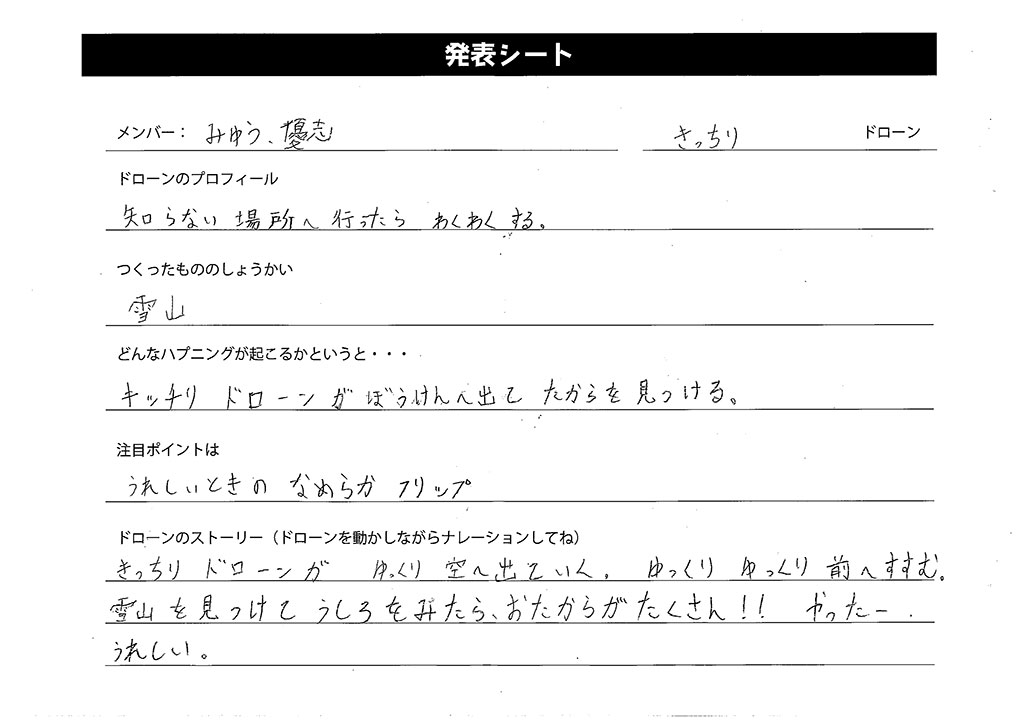 発表シート
メンバー： みゆう、優志 きっちり ドローン
ドローンのプロフィール
知らない場所へ行ったら わくわくする。
つくったもののしょうかい
雪山
どんなハプニングが起こるかというと・・・
キッチリドローンがぼうけんへ出てたからを見つける。
注目ポイントは
うれしいときの なめらか フリップ
ドローンのストーリー（ドローンを動かしながらナレーションしてね）
きっちりドローンが ゆっくり空へ出ていく. ゆっくりゆっくり前へすすむ.
雪山を見つけてうしろをみたら、おたからがたくさん!! やったー.
うれしい。